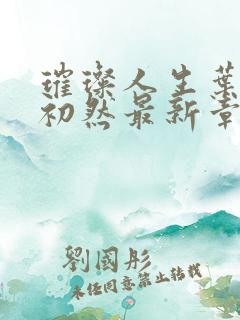 璀璨人生葉
初然最新章
劉國彤
未经同意禁止转载